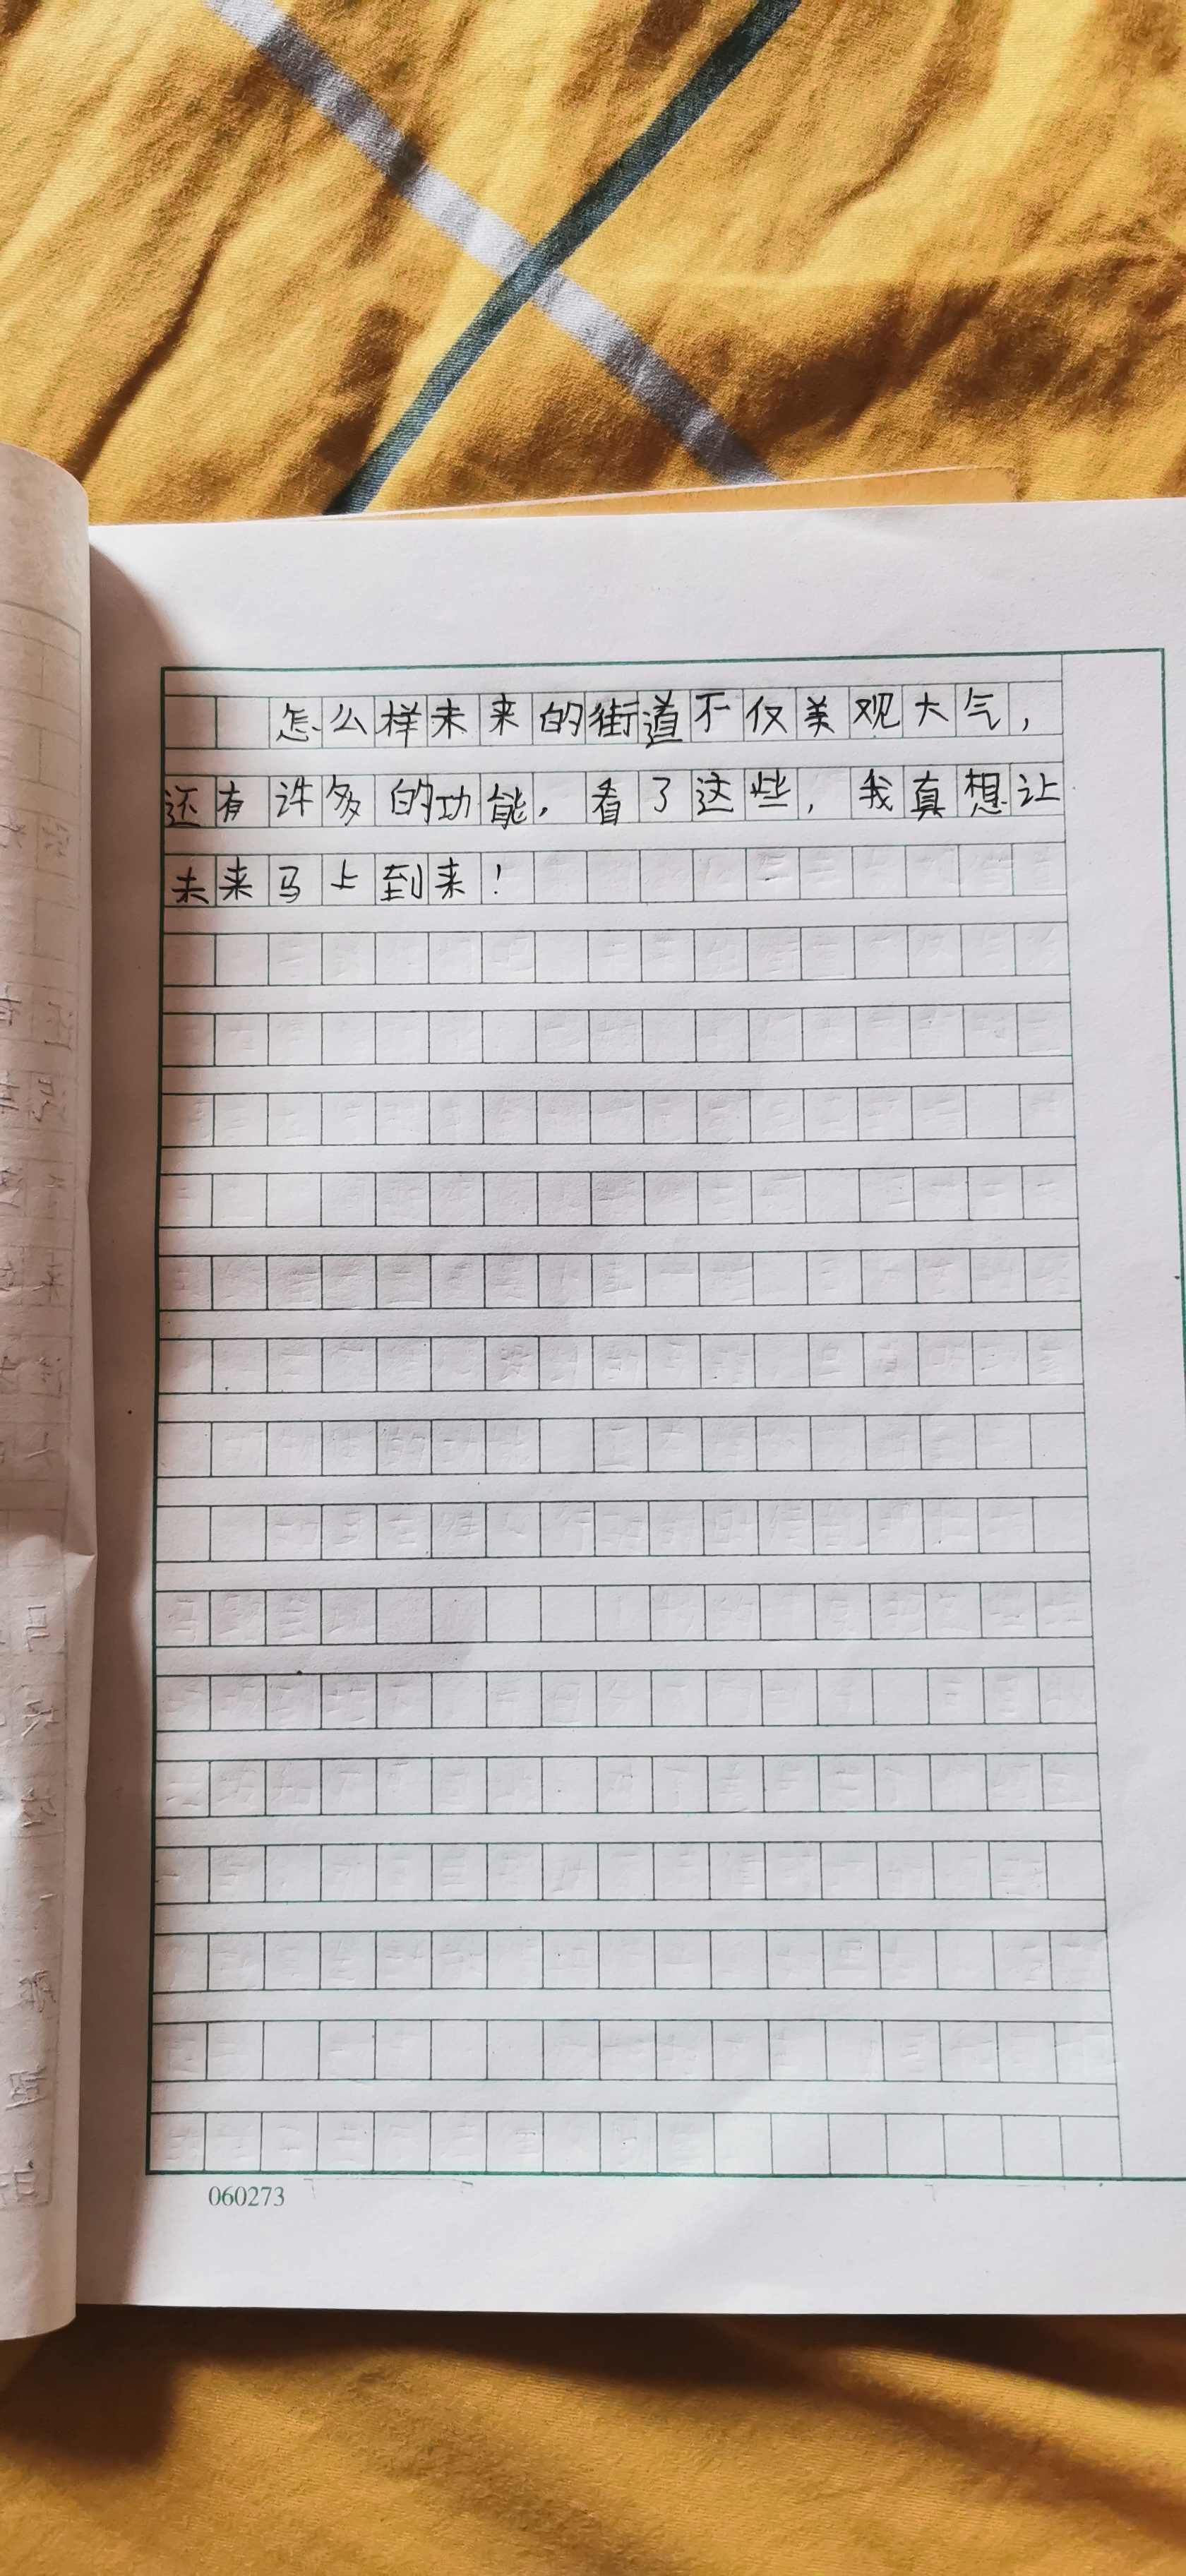 怎么样未来的街道不仅美观大气，
还有许多的功能，看了这些，我真想让
未来马上到来！
060273